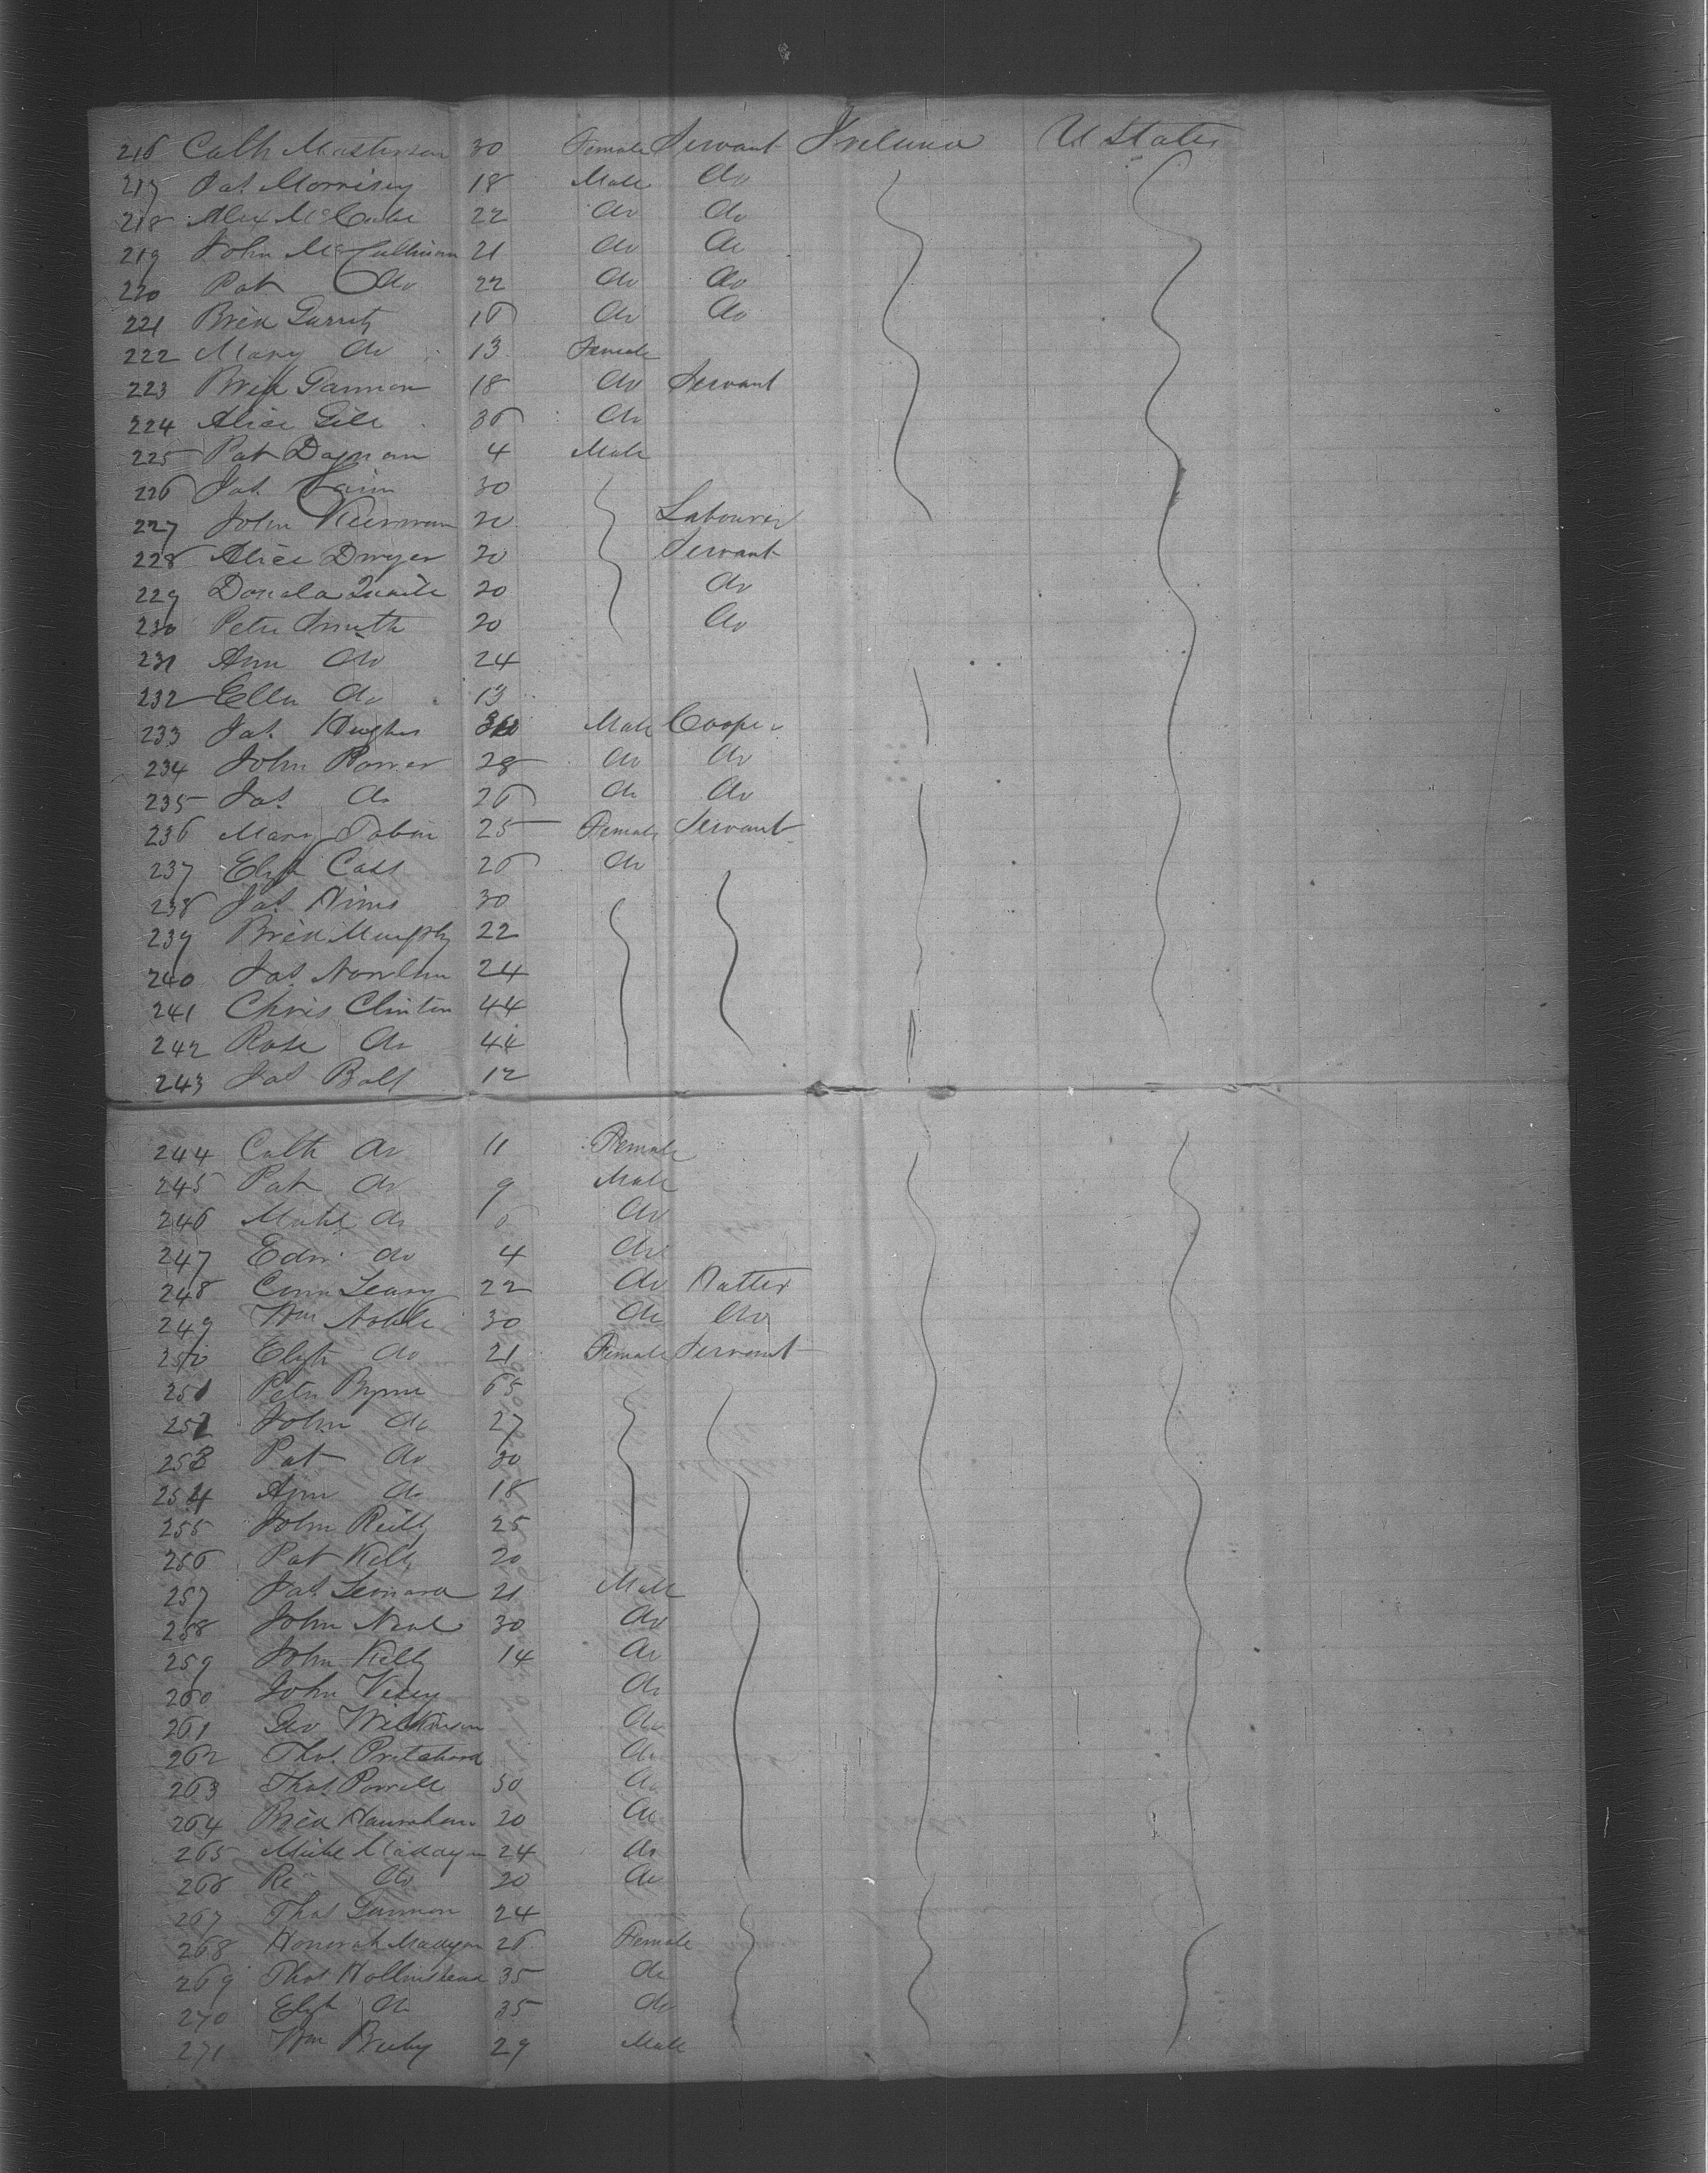 216 Cath Masterson 30 Female Servant Ireland U States
217 Jas Morrisey 18 Male do
218 Alex McCabe 22 do do
219 John McCullinan 21 do do
220 Pat do 22 do do
221 Brid Garrity 16 do do
222 Mary do 13 Female
223 Brid Gannon 18 do Servant
224 Alice Gill 36 do
225 Pat Dagnan 4 Male
226 Jas 30
227 John Kiernan 20 Labourer
228 Alice Dwyer 20 Servant
229 20 do
230 Peter Smith 20 do
231 Ann do 24
232 Ellen do 13
233 Jas Hughes Male Cooper
234 John Power 28 do do
235 Jas do 26 do do
236 Mary Tobin 25 Female Servant
237 Elizth Cass 26 do
238 Jas Nims 30
239 Brid Murphy 22
240 Jas Nowlan 24
241 Chris Clinton 44
242 Rose do 44
243 Jas Ball 12
244 Cath do 11 Female
245 Pat do 9 Male
246 Mich do 6 do
247 Edw do 4 do
248 Conn Leary 22 do Hatter
249 Wm Noble 30 do do
250 Elizth do 21 Female Servant
251 Peter Byrne 65
252 John do 27
253 Pat do 30
254 Ann do 18
255 John Reilly 25
256 Pat Kelly 20
257 Jas Lenard 21 Male
258 John Neal 30 do
259 John Kelly 14 do
260 John Vesey do
261 Geo Wilkinson do
262 Thos Pritchard do
263 Thos Powell 50 do
264 Brid Hanrahan 20 do
265 Mich Madagan 24 do
266 do 20 do
267 Thos Gannon 24
268 Honorah Madigan 26 Female
269 Thos Hollinstead 35 do
270 Elizth do 35 do
271 Wm Beeby 29 Male